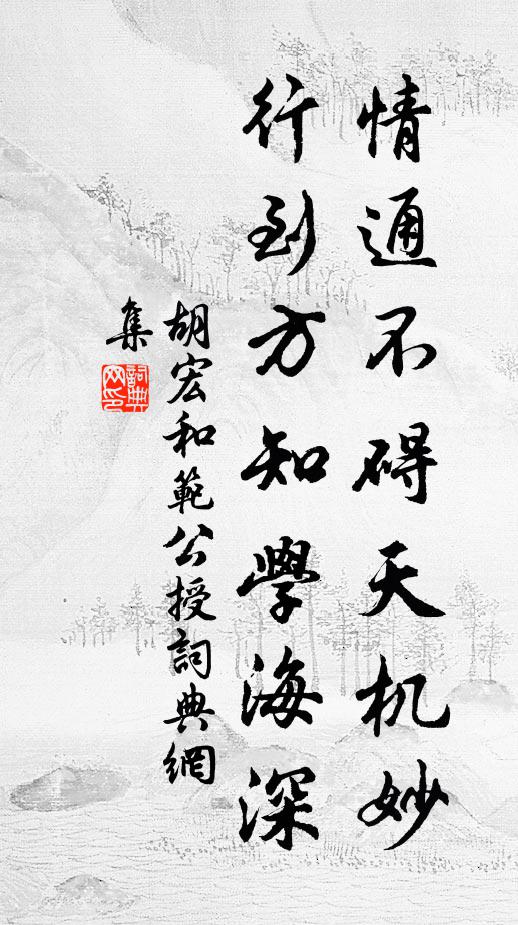 情通不碍天机妙
行到方知學海深
胡宏和範公授詞典網
集
詞典
网印